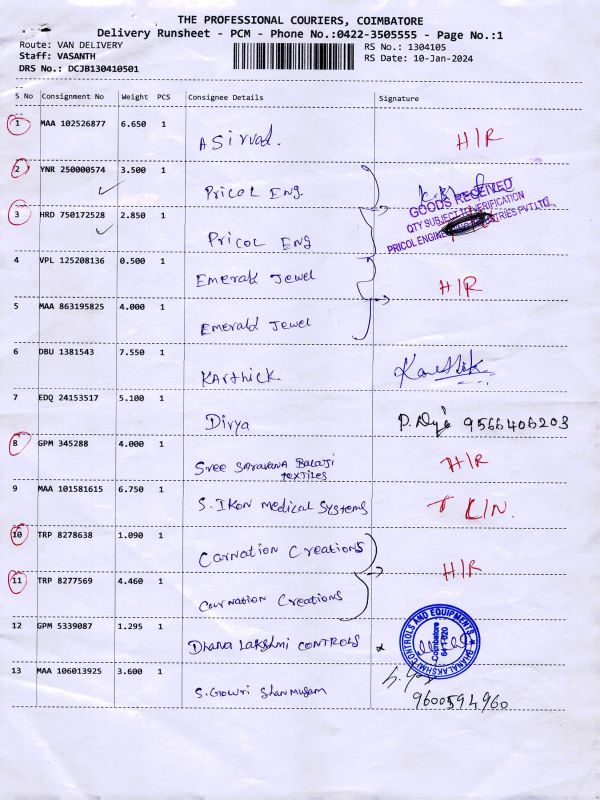 THE PROFESSIONAL COURIERS, COIMBATORE
Delivery Runsheet - PCM - Phone No.:0422-3505555 - Page No.:1
Route: VAN DELIVERY
Staff: VASANTH
DRS No.: DCJB130410501
RS No.: 1304105
RS Date: 10-Jan-2024
S No Consignment No Weight PCS Consignee Details Signature
1 MAA 102526877 6.650 1
Asirvad. H/R
2 YNR 250000574 3.500 1
Pricol Eng
GOODS RECEIVED
QTY SUBJECT TO VERIFICATION
3 HRD 750172528 2.850 1
Pricol Eng
4 VPL 125208136 0.500 1
Emerald Jewel H/R
5 MAA 863195825 4.000 1
Emerald Jewel
6 DBU 1381543 7.550 1
Karthick. Karthik
7 EDQ 24153517 5.100 1
Divya P. Divya 9566406203
8 GPM 345288 4.000 1
Sree Saravana Balaji
Textiles H/R
9 MAA 101581615 6.750 1
S. Ikon Medical Systems
10 TRP 8278638 1.090 1
Carnation Creations H/R
11 TRP 8277569 4.460 1
Carnation Creations
12 GPM 5339087 1.295 1
Dhana Lakshmi Controls
DHANALAKSHMI CONTROLS AND EQUIPMENTS
Coimbatore
13 MAA 106013925 3.600 1
S. Gowri Shanmugam 9600594960